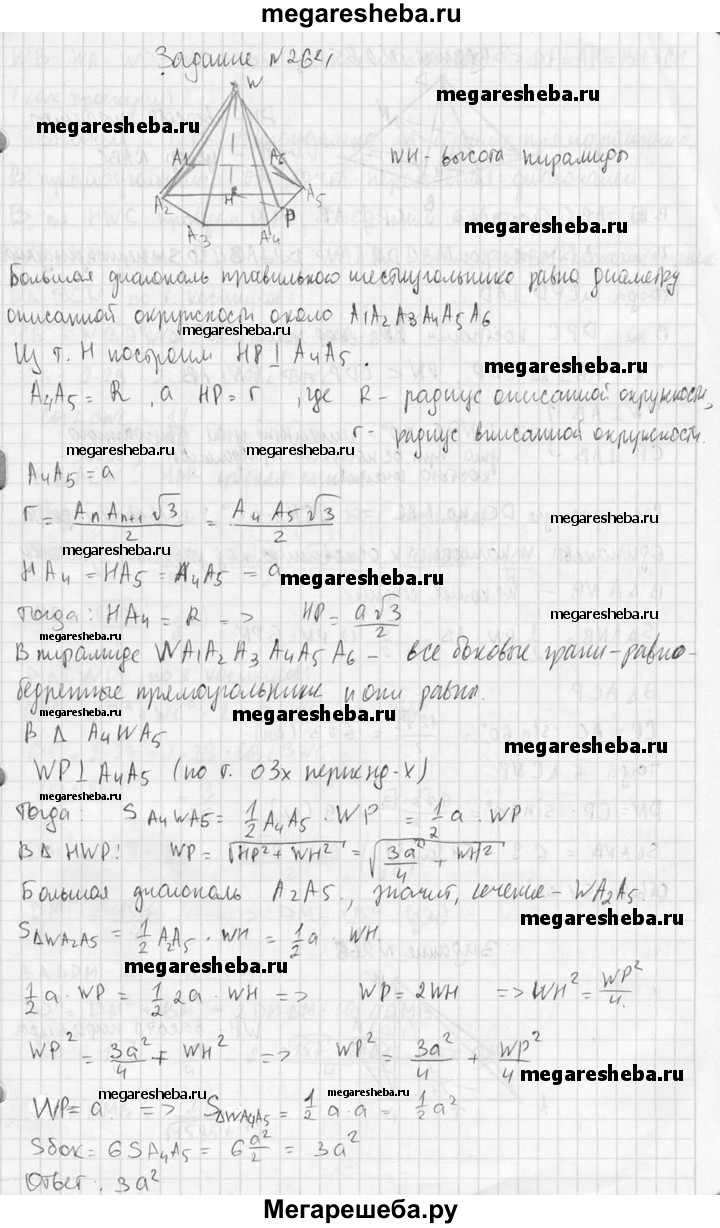 megaresheba.ru
Задание N264
W
megaresheba.ru
megaresheba.ru
A1 A6
WH - высота пирамиды
A2 H A5
P
A3 A4
megaresheba.ru
Большая диагональ правильного шестиугольника равна диаметру
описанной окружности около A1A2A3A4A5A6
megaresheba.ru
Из т. H построим HP ⊥ A4A5.
megaresheba.ru
A4A5 = R, а HP = r, где R - радиус описанной окружности,
r - радиус вписанной окружности.
megaresheba.ru
megaresheba.ru
A4A5 = a
r = AnAn+1√3/2 = A4A5√3/2
megaresheba.ru
megaresheba.ru
HA4 = HA5 = A4A5 = a
megaresheba.ru
Тогда: HA4 = R => HP = a√3/2
megaresheba.ru
megaresheba.ru
В пирамиде WA1A2A3A4A5A6 - все боковые грани - равно-
бедренные прямоугольники и они равны.
megaresheba.ru
megaresheba.ru
В Δ A4WA5
megaresheba.ru
WP ⊥ A4A5 (по т. О 3х перпенд-х)
megaresheba.ru
Тогда: S A4WA5 = 1/2 A4A5 · WP = 1/2 a · WP
megaresheba.ru
В Δ HWP: WP = √HP² + WH² = √3a²/4 + WH²
Большая диагональ A2A5., значит, сечение - WA2A5
megaresheba.ru
SΔWA2A5 = 1/2 A2A5 · WH = 1/2 a · WH.
megaresheba.ru
1/2 a · WP = 1/2 2a · WH => WP = 2WH => WH² = WP²/4.
WP² = 3a²/4 + WH² => WP² = 3a²/4 + WP²/4
megaresheba.ru
megaresheba.ru
megaresheba.ru
WP = a => SΔWA4A5 = 1/2 a · a = 1/2 a²
Sбок = 6SA4A5 = 6 a²/2 = 3a²
megaresheba.ru
megaresheba.ru
Ответ: 3a²
Мегарешеба.ру